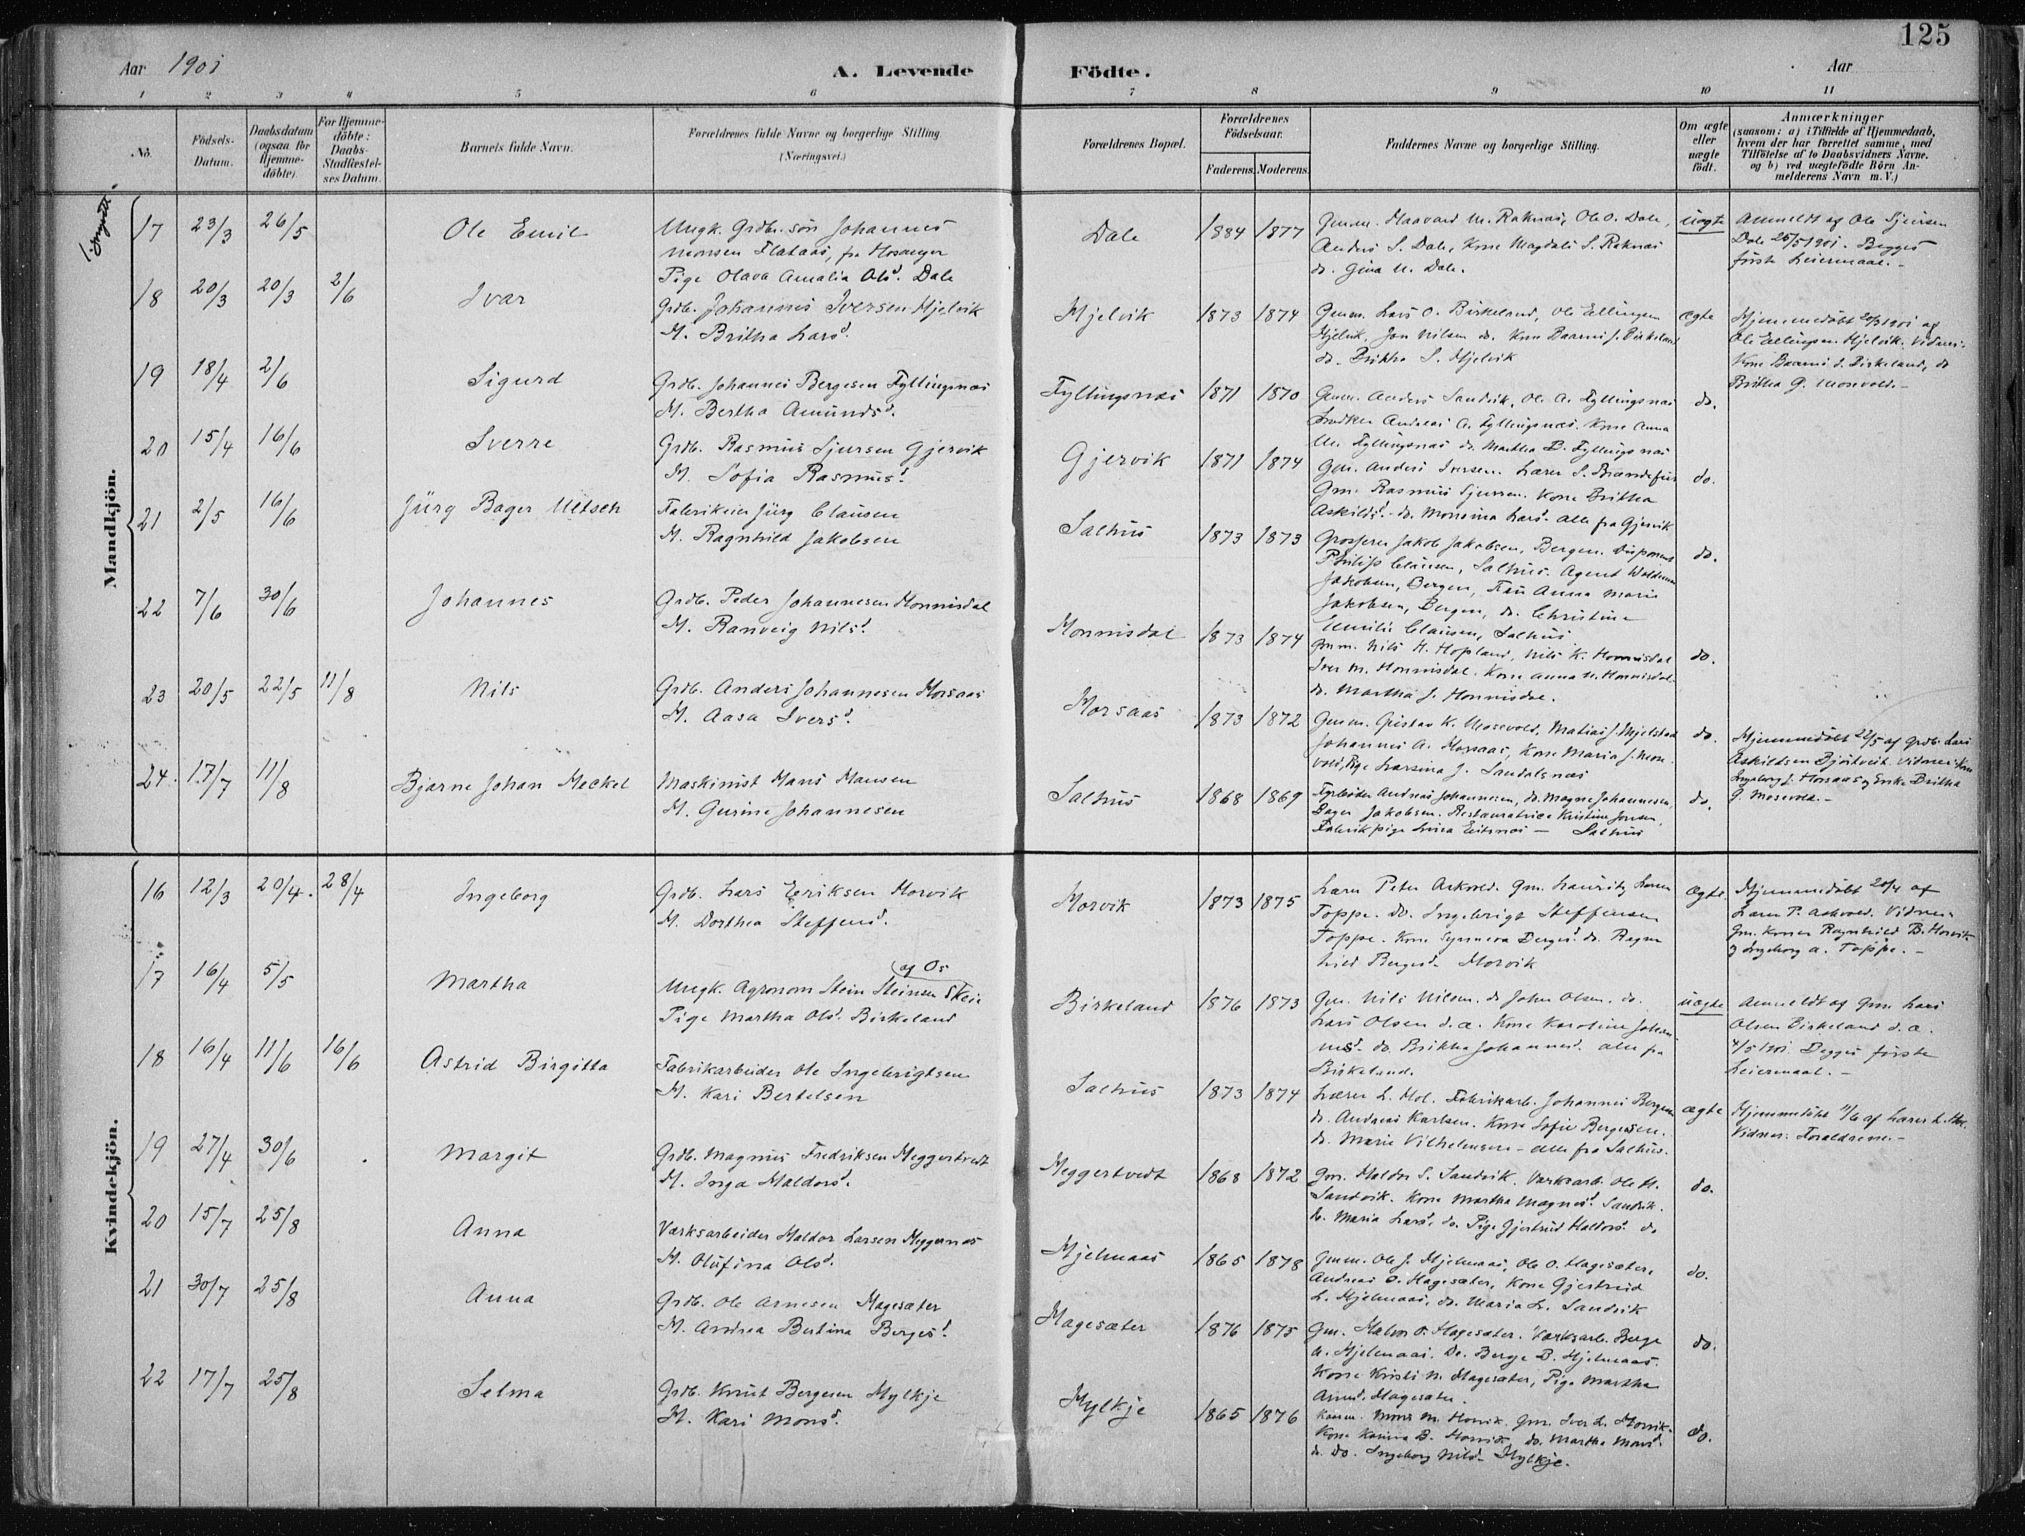 125
Aar 1901
A. Levende Födte.
Aar
1 2 3 4 5 6 7 8 9 10 11
No.
Födsels-Datum.
Daabsdatum (ogsaa for Hjemme-döbte).
For Hjemme-döbte: Daabs-Stadfæstel-ses Datum.
Barnets fulde Navn.
Forældrenes fulde Navne og borgerlige Stilling. (Næringsvei.)
Forældrenes Bopæl.
Forældrenes Födselsaar.
Faderens. Moderens.
Faddernes Navne og borgerlige Stilling.
Om ægte eller uægte födt.
Anmærkninger
(saasom: a) i Tilfælde af Hjemmedaab, hvem der har forrettet samme, med Tilföielse af to Daabsvidners Navne. og b) ved uægtefödte Börn An-melderens Navn m. V.)
Mandkjön.
17 23/3 26/5 Ole Emil
Ungk. Grdb. sön Johannes
Monsen Flataas, fra Hosanger
Pige Olava Amalia Olsd. Dale
Dale 1884 1877
Gmm. Haavard M. Raknæs, Ole O. Dale,
Anders S. Dale, Kone Magdali S. Raknæs
do. Gina M. Dale.
uægte
Anmeldt af Ole Sjursen
Dale 26/5 1901. Begges
første Leiermaal.-
18 20/3 20/3 2/6 Ivar
Grdb. Johannes Iversen Hjelvik
H. Britha Larsd.
Hjelvik 1873 1874
Gmm. Lars O. Birkeland, Ole Ellingsen
Hjelvik, Jon Nilsen do. Kone Baarni J. Birkeland
do. Britha S. Hjelvik
ægte
Hjemmedöbt 20/3 1901 af
Ole Ellingsen Hjelvik. Vidner:
Kone Baarni J. Birkeland, do
Britha G. Mosevold.-
19 18/4 2/6 Sigurd
Grdb. Johannes Bergesen Fyllingsnæs
H. Bertha Amundsd.
Fyllingsnæs 1871 1870
Gmm. Anders Sandvik, Ole A. Fyllingsnæs
Andreas A. Fyllingsnæs. Kone Anna
M. Fyllingsnæs do. Martha B. Fyllingsnæs
do.
20 15/4 16/6 Sverre
Grdb. Rasmus Sjursen Gjervik
H. Sofia Rasmusd.
Gjervik 1871 1874
Gm. Anders Iversen. Lærer S. Brandefur
Gm. Rasmus Sjursen. Kone Britha
Askildsd. do. Monsina Larsd. alle fra Gjervik
do.
21 2/5 16/6 Jürg Bager Ultsch
Fabrikeier Jürg Clausen
H. Ragnhild Jakobsen
Salhus 1873 1873
Grosserer Jakob Jakobsen, Bergen. Disponent
Philip Clausen, Salhus. Agent Waldemar
Jakobsen, Bergen, Frü Anna Marie
Jakobsen, Bergen, do. Christine
Emilie Clausen, Salhus
do.
22 7/6 30/6 Johannes
Grdb. Peder Johannesen Honnisdal
H. Ranveig Nilsd.
Honnisdal 1873 1874
Gmm. Nils H. Hopland, Nils K. Honnisdal
Iver M. Honnisdal. Kone Anna N. Honnisdal
do. Martha J. Honnisdal.
do.
23 20/5 22/5 11/8 Nils
Grdb. Anders Johannesen Horsaas
H. Aasa Iversd.
Horsaas 1873 1872
Gmm. Gustav K. Mosevold, Matias J. Mjelstad
Johannes A. Horsaas, Kone Maria J. Mose-
vold, Pige Larsina J. Sandalsnæs
do.
Hjemmedöbt 22/5 af Grdb. Lars
Askildsen Björtveit. Vidner: Kone
Ingeborg J. Horsaas og Enke Britha
G. Mosevold.-
24. 17/7 11/8 Bjarne Johan Meckel
Maskinist Hans Hansen
H. Gurine Johannesen
Salhus 1868 1869
Fyrböder Andreas Johannesen, do. Magne Johannesen,
Bager Jakobsen. Restauratrice Kristine Jonsen,
Fabrikpige Lovisa Eitsnæs - Salhus
do.
Kvindekjön.
16 12/3 20/4. 28/4 Ingeborg
Grdb. Lars Eriksen Horvik
H. Dorthea Steffensd.
Morvik 1873 1875
Lærer Peter Askvold. Gm. Lauritz Larsen
Toppe. do. Ingebrigt Steffensen
Toppe. Kone Synneva Bergesd. do. Ragn-
hild Bergesd. Morvik
Ægte.
Hjemmedöbt 20/4 af
Lærer P. Askvold. Vidner:
Gm. Koner Ragnhild B. Horvik
og Ingeborg A. Toppe.-
17 16/4 5/5 Martha
af Os
Ungk. Agronom Stein Steinsen Skeie
Pige Martha Olsd. Birkeland
Birkeland 1876 1873
Gm. Nils Nilsen. do John Olsen. do.
Lars Olsen d.a. Kone Karoline Johan-
nesd. do. Brikha Johannesd. alle fra
Birkeland.
uægte
Anmeldt af Gm. Lars
Olsen Birkeland d.a.
4/5 1901. Begges første
Leiermaal.-
18 16/4 11/6 16/6 Astrid Birgitta
Fabrikarbeider Ole Ingebrigtsen
H. Kari Bertelsen
Salhus 1873 1874
Lærer L. Mol. Fabrikarb. Johannes Bergesen
do. Andreas Karlsen. Kone Sofie Bergesen.
do. Marie Vilhelmsen - alle fra Salhus.
ægte
Hjemmedöbt 11/6 af Lærer L. Mol.
Vidner: Forældrene.-
19 27/4 30/6 Margit
Grdb. Magnus Fredriksen Heggertvedt
H. Inga Haldorsd.
Heggertvedt 1868 1872
Gm. Haldor S. Sandvik. Værksarb. Ole H.
Sandvik. Kone Martha Magnesd. Sandvik.
do. Maria Larsd. do. Pige Gjertrud Haldorsd. do
do.
20 15/7 25/8 Anna
Værksarbeider Haldor Larsen Heggernæs
H. Olüfina Olsd.
Hjelmaas 1865 1878
Gmm. Ole J. Hjelmaas, Ole O. Hagesæter,
Andreas O. Hagesæter, Kone Gjertrud
L. Hjelmaas, do. Maria L. Sandvik
do.
21 30/7 25/8 Anna
Grdb. Ole Arnesen Hagesæter
H. Andrea Bertina Bergesd.
Hagesæter 1876 1875
Gm. Halvor O. Hagesæter. Værksarb. Berge
N. Hjelmaas. Do. Berge B. Hjelmaas.
Kone Kristi M. Hagesæter, Pige Martha
Arnesd. Hagesæter.
do.
22 17/7 25/8 Selma
Grdb. Knut Bergesen Hylkje
H. Kari Monsd.
Hylkje 1865 1876
Mons M. Horvik. Gm. Iver L. Morvik.
Kone Karina B. Horvik, do. Martha Monsd.
do. Do. Ingeborg Nilsd. Hylkje.
do.